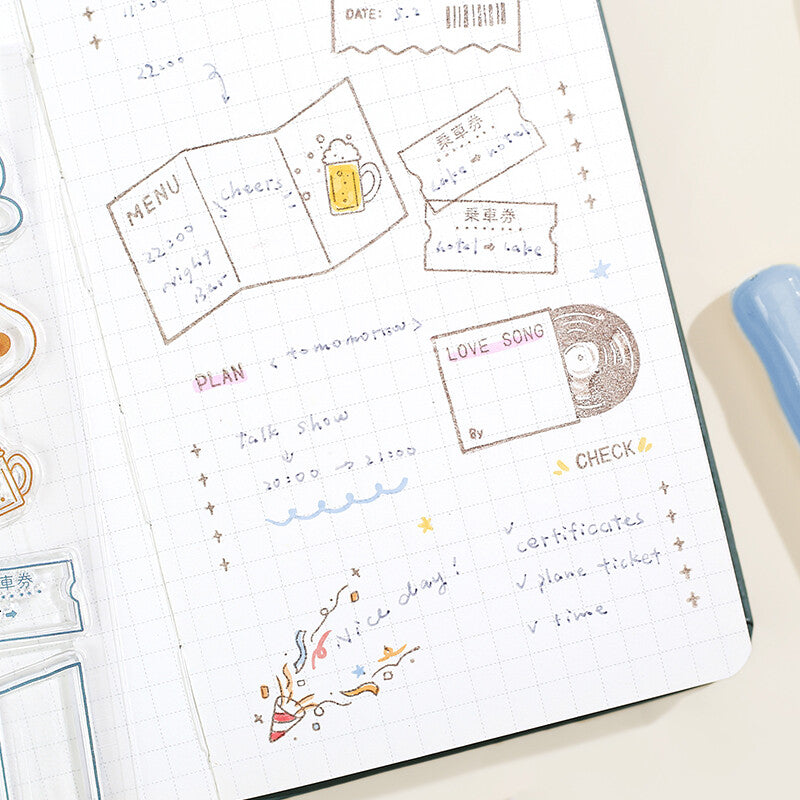 11:00
DATE: 5.2
22:00
MENU
22:00
Night
Bar
cheers
乗車券
Lake → hotel
乗車券
hotel → Lake
LOVE SONG
By
PLAN < tomomorrow >
talk show
↓
20:00 → 21:00
CHECK
✓ certificates
✓ plane ticket
✓ time
Nice day!
車券
→